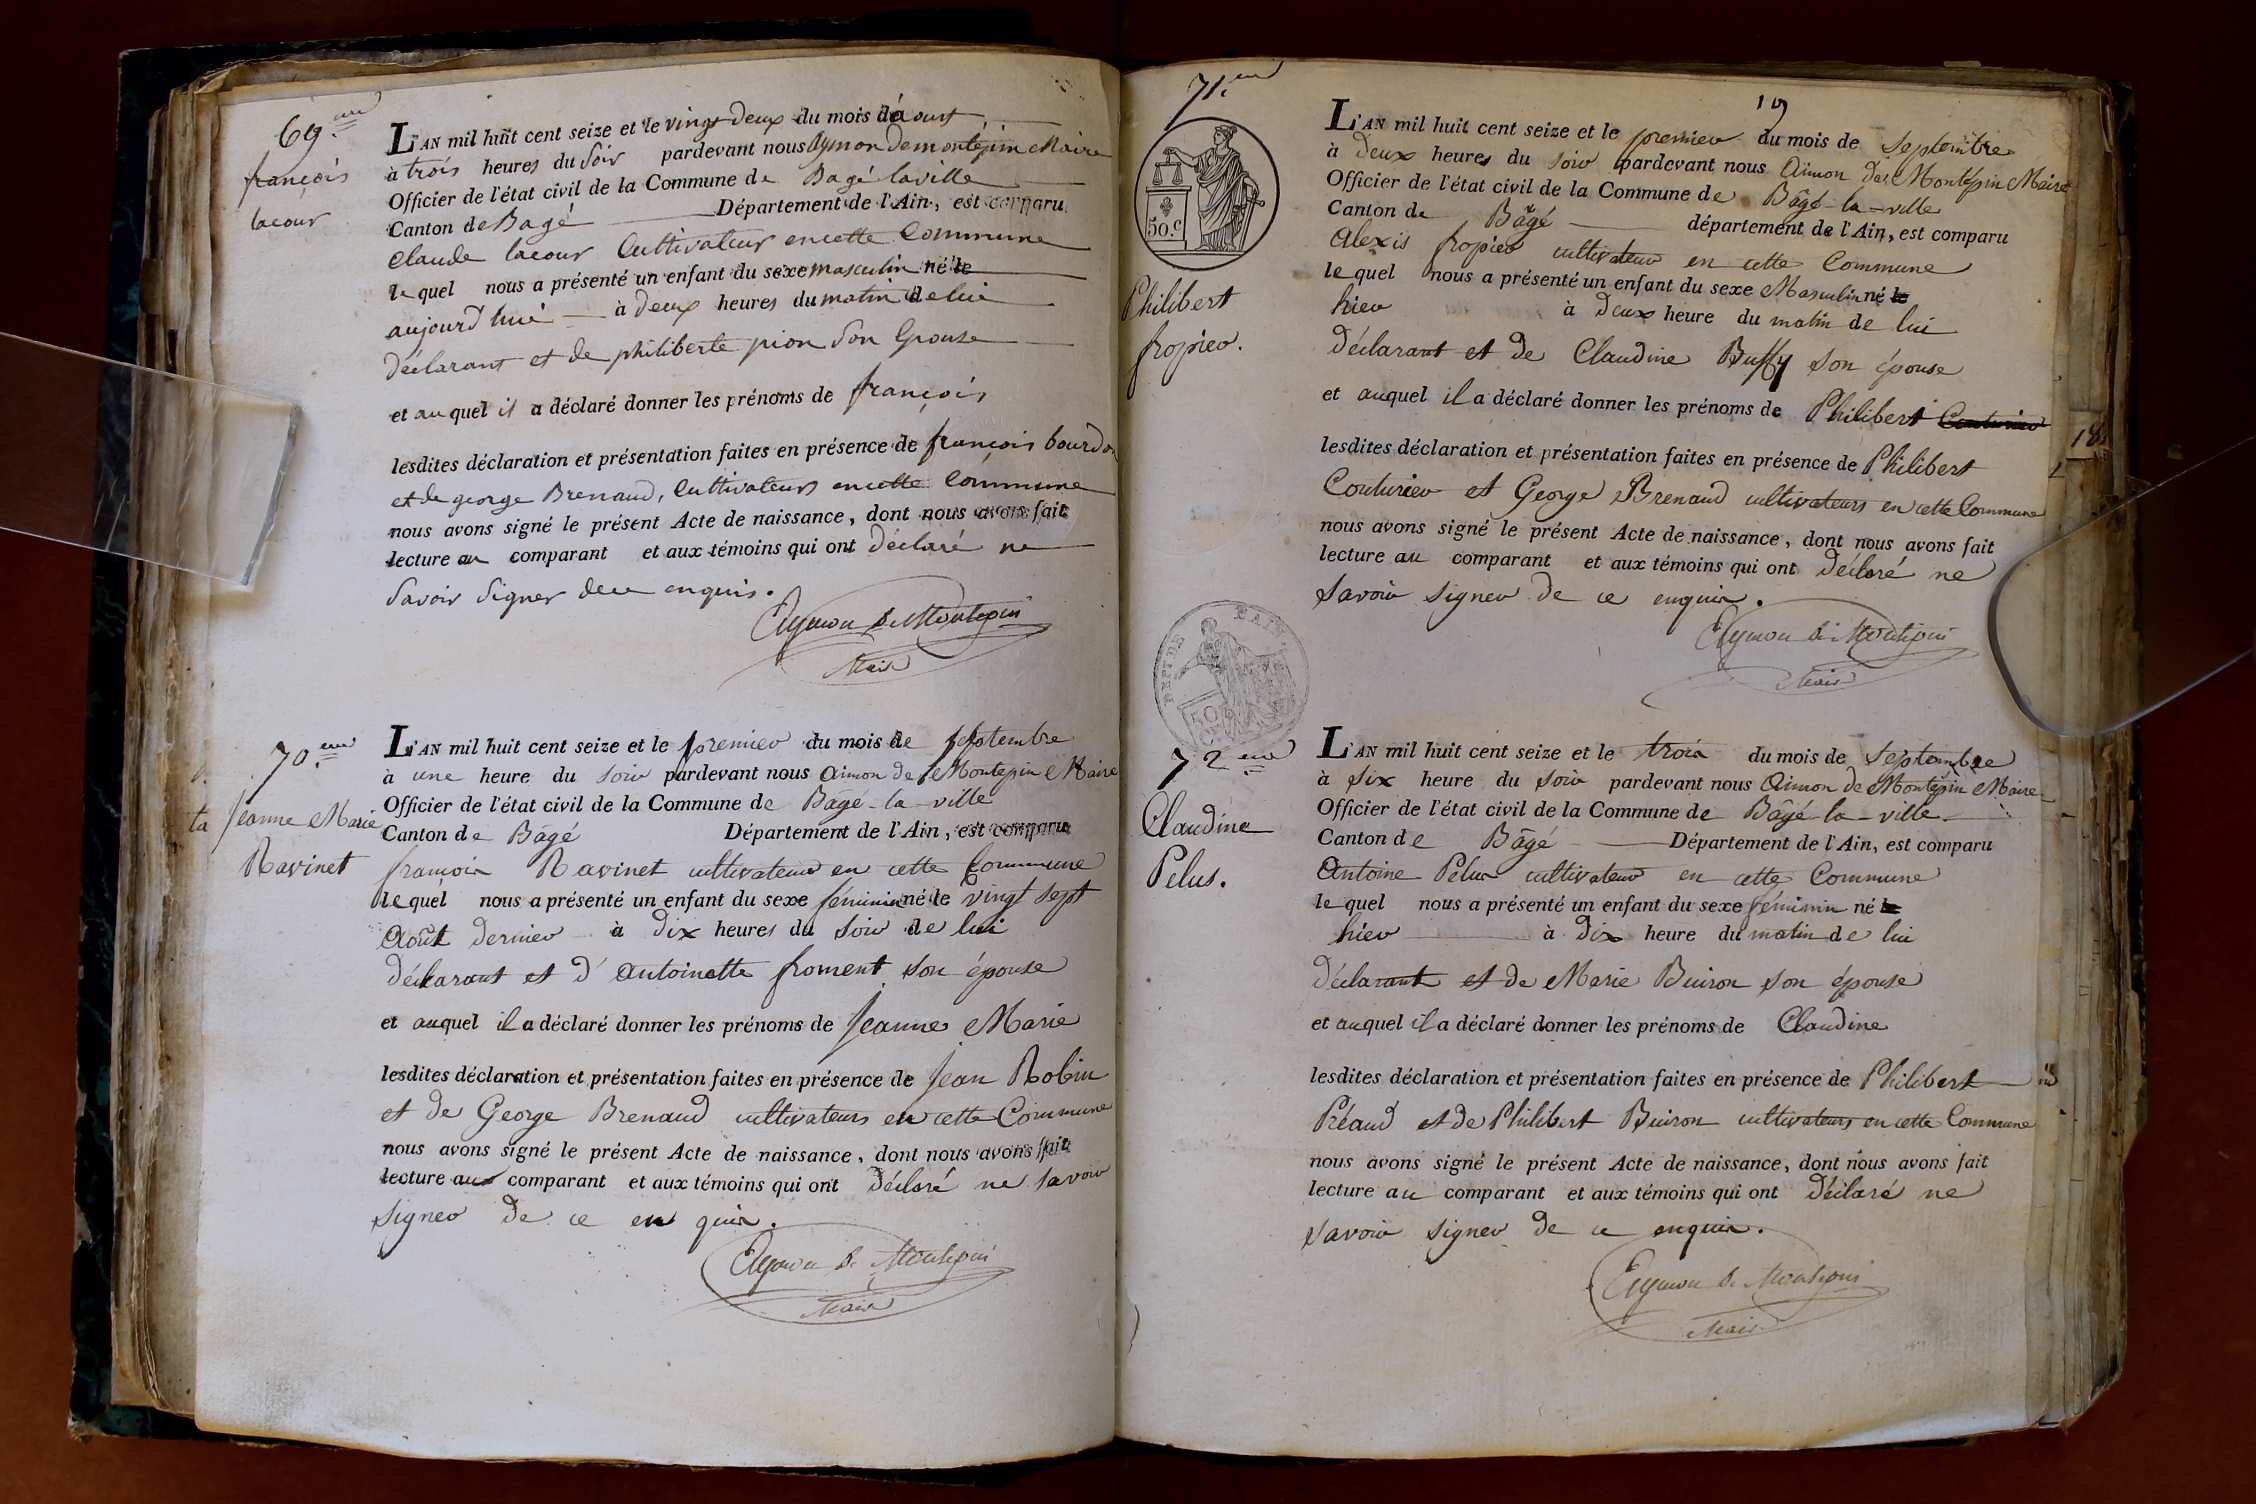 69.eme
françois
lacour
L'AN mil huit cent seize et le vingt deux du mois d'aoust
à trois heures du soir pardevant nous Aymon demontépin Maire
Officier de l'état civil de la Commune de Bagé laville
Canton de Bagé Département de l'Ain, est comparu
Claude lacour Cultivateur en cette Commune
le quel nous a présenté un enfant du sexe masculin né le
aujourd'hui à deux heures du matin de lui
déclarant et de philiberte pion son Epouse
et au quel il a déclaré donner les prénoms de françois
lesdites déclaration et présentation faites en présence de françois bourdon
et de george Brenaud, Cultivateurs en cette Commune
nous avons signé le présent Acte de naissance, dont nous avons fait
lecture au comparant et aux témoins qui ont déclaré ne
savoir signer de ce enquis.
Aymon de Montepin
Maire
70.eme
Jeanne Marie
Ravinet
L'AN mil huit cent seize et le premier du mois de septembre
à une heure du soir pardevant nous Aimon de Montepin Maire
Officier de l'état civil de la Commune de Bâgé-la-ville
Canton de Bâgé Département de l'Ain, est comparu
françois Ravinet cultivateur en cette Commune
le quel nous a présenté un enfant du sexe féminin né le vingt sept
Août dernier à dix heures du soir de lui
déclarant et d'Antoinette froment son épouse
et auquel il a déclaré donner les prénoms de Jeanne Marie
lesdites déclaration et présentation faites en présence de Jean Robin
et de George Brenaud cultivateurs en cette Commune
nous avons signé le présent Acte de naissance, dont nous avons fait
lecture au comparant et aux témoins qui ont déclaré ne savoir
signer de ce en quis.
Aymon de Montepin
Maire
19
71.eme
50.c
Philibert
fropier.
L'AN mil huit cent seize et le premier du mois de septembre
à deux heures du soir pardevant nous Aimon de Montépin Maire
Officier de l'état civil de la Commune de Bâgé-la-ville
Canton de Bâgé département de l'Ain, est comparu
Alexis fropier cultivateur en cette Commune
le quel nous a présenté un enfant du sexe Masculin né le
hier à deux heure du matin de lui
déclarant et de Claudine Buffy son épouse
et auquel il a déclaré donner les prénoms de Philibert Couturier
lesdites déclaration et présentation faites en présence de Philibert
Couturier et George Brenaud cultivateurs en cette Commune
nous avons signé le présent Acte de naissance, dont nous avons fait
lecture au comparant et aux témoins qui ont déclaré ne
savoir signer de ce enquis.
Aymon de Montepin
Maire
DEPT DE L'AIN
50
72eme
Claudine
Pelus.
L'AN mil huit cent seize et le trois du mois de septembre
à six heure du soir pardevant nous Aimon de Montépin Maire
Officier de l'état civil de la Commune de Bâgé-la-ville
Canton de Bâgé Département de l'Ain, est comparu
Antoine Pelus cultivateur en cette Commune
le quel nous a présenté un enfant du sexe féminin né le
hier à dix heure du matin de lui
déclarant et de Marie Buiron son épouse
et auquel il a déclaré donner les prénoms de Claudine
lesdites déclaration et présentation faites en présence de Philibert
Préaud et de Philibert Buiron cultivateurs en cette Commune
nous avons signé le présent Acte de naissance, dont nous avons fait
lecture au comparant et aux témoins qui ont déclaré ne
savoir signer de ce enquis.
Aymon de Montepin
Maire